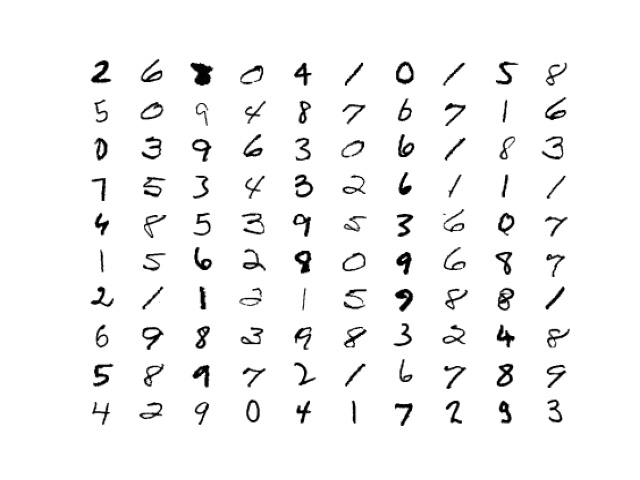 2 6 8 0 4 1 0 1 5 8
5 0 9 4 8 7 6 7 1 6
0 3 9 6 3 0 6 1 8 3
7 5 3 4 3 2 6 1 1 1
4 8 5 3 9 5 3 6 0 7
1 5 6 2 8 0 9 6 8 7
2 1 1 2 1 5 9 8 8 1
6 9 8 3 9 8 3 2 4 8
5 8 9 7 2 1 6 7 8 9
4 2 9 0 4 1 7 2 9 3